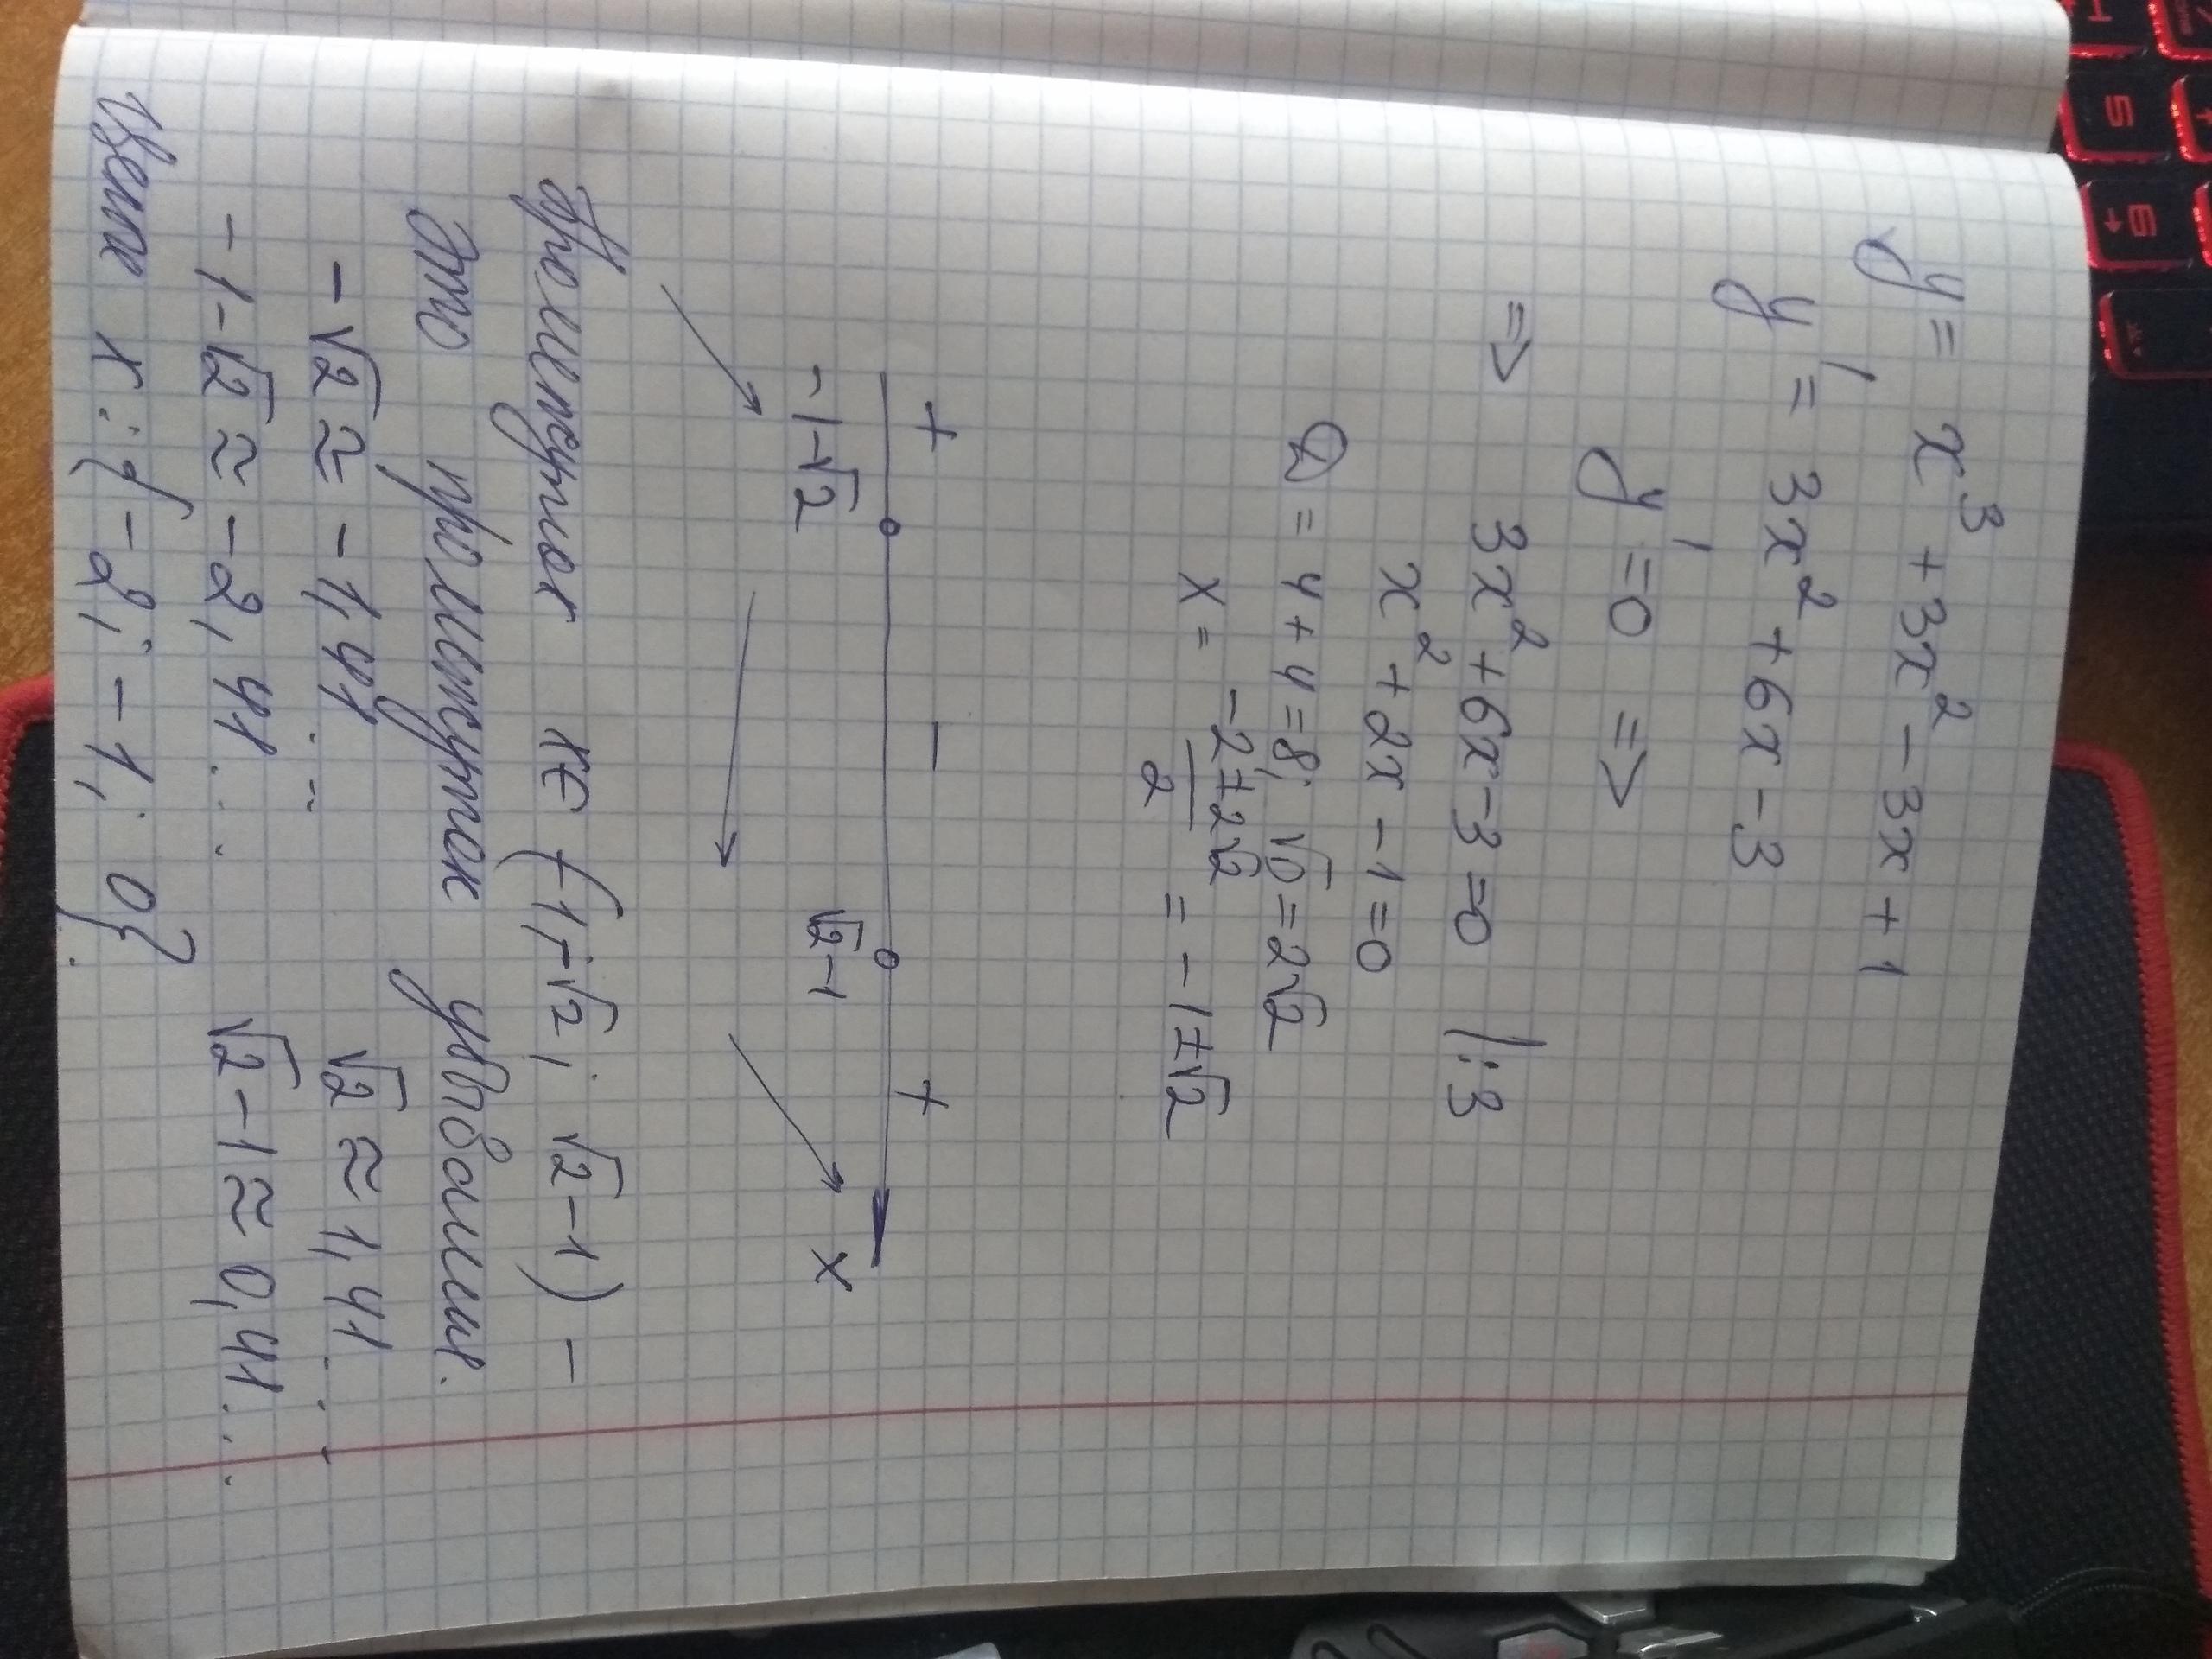 y = x³ + 3x² - 3x + 1
y' = 3x² + 6x - 3
y' = 0 =>
=> 3x² + 6x - 3 = 0 |:3
x² + 2x - 1 = 0
D = 4 + 4 = 8; √D = 2√2
x = (-2 ± 2√2)/2 = -1 ± √2
+ - +
-1-√2 √2-1 x
Промежуток x ∈ (-1-√2; √2-1) -
это промежуток убывания.
-√2 ≈ -1,41... √2 ≈ 1,41...
-1-√2 ≈ -2,41... √2-1 ≈ 0,41...
Целые x: {-2; -1; 0}.
5
6